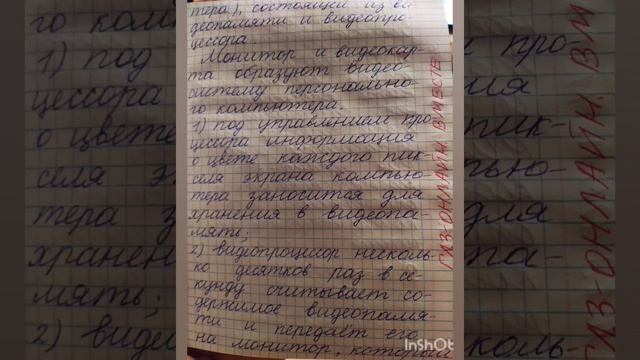 тера), состоящей из ви-
деопамяти и видеопро-
цессора.
Монитор и видеокар-
та образуют видео-
систему персонально-
го компьютера.
1) под управлением про-
цессора информация
о цвете каждого пик-
селя экрана компью-
тера заносится для
хранения в видеопа-
мять;
2) видеопроцесор несколь-
ко десятков раз в се-
кунду считывает со-
держимое видеопамя-
ти и передаёт его
на монитор, который
ГДЗ-ОНЛАЙН ВМЕСТЕ
InShOt